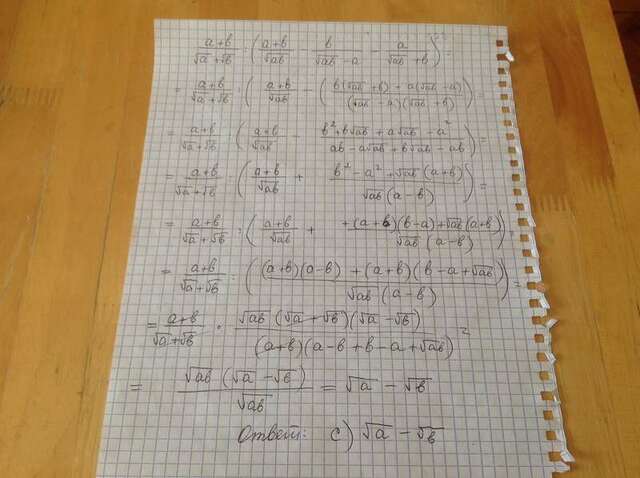 (a+b)/(√a+√b) : ((a+b)/√ab − b/(√ab−a) − a/(√ab+b)) =
= (a+b)/(√a+√b) : ((a+b)/√ab − (b(√ab+b) + a(√ab−a))/((√ab−a)(√ab+b))) =
= (a+b)/(√a+√b) ((a+b)/√ab − (b²+b√ab+a√ab−a²)/(ab−a√ab+b√ab−ab)) =
= (a+b)/(√a+√b) · ((a+b)/√ab + (b²−a²+√ab(a+b))/(√ab(a−b))) =
= (a+b)/(√a+√b) : ((a+b)/√ab + (+(a+b)(b−a)+√ab(a+b))/(√ab(a−b))) =
= (a+b)/(√a+√b) : (((a+b)(a−b) + (a+b)(b−a+√ab))/(√ab(a−b))) =
= (a+b)/(√a+√b) · (√ab(√a+√b)(√a−√b))/((a+b)(a−b+b−a+√ab)) =
= (√ab(√a−√b))/√ab = √a − √b
Ответ: c) √a − √b